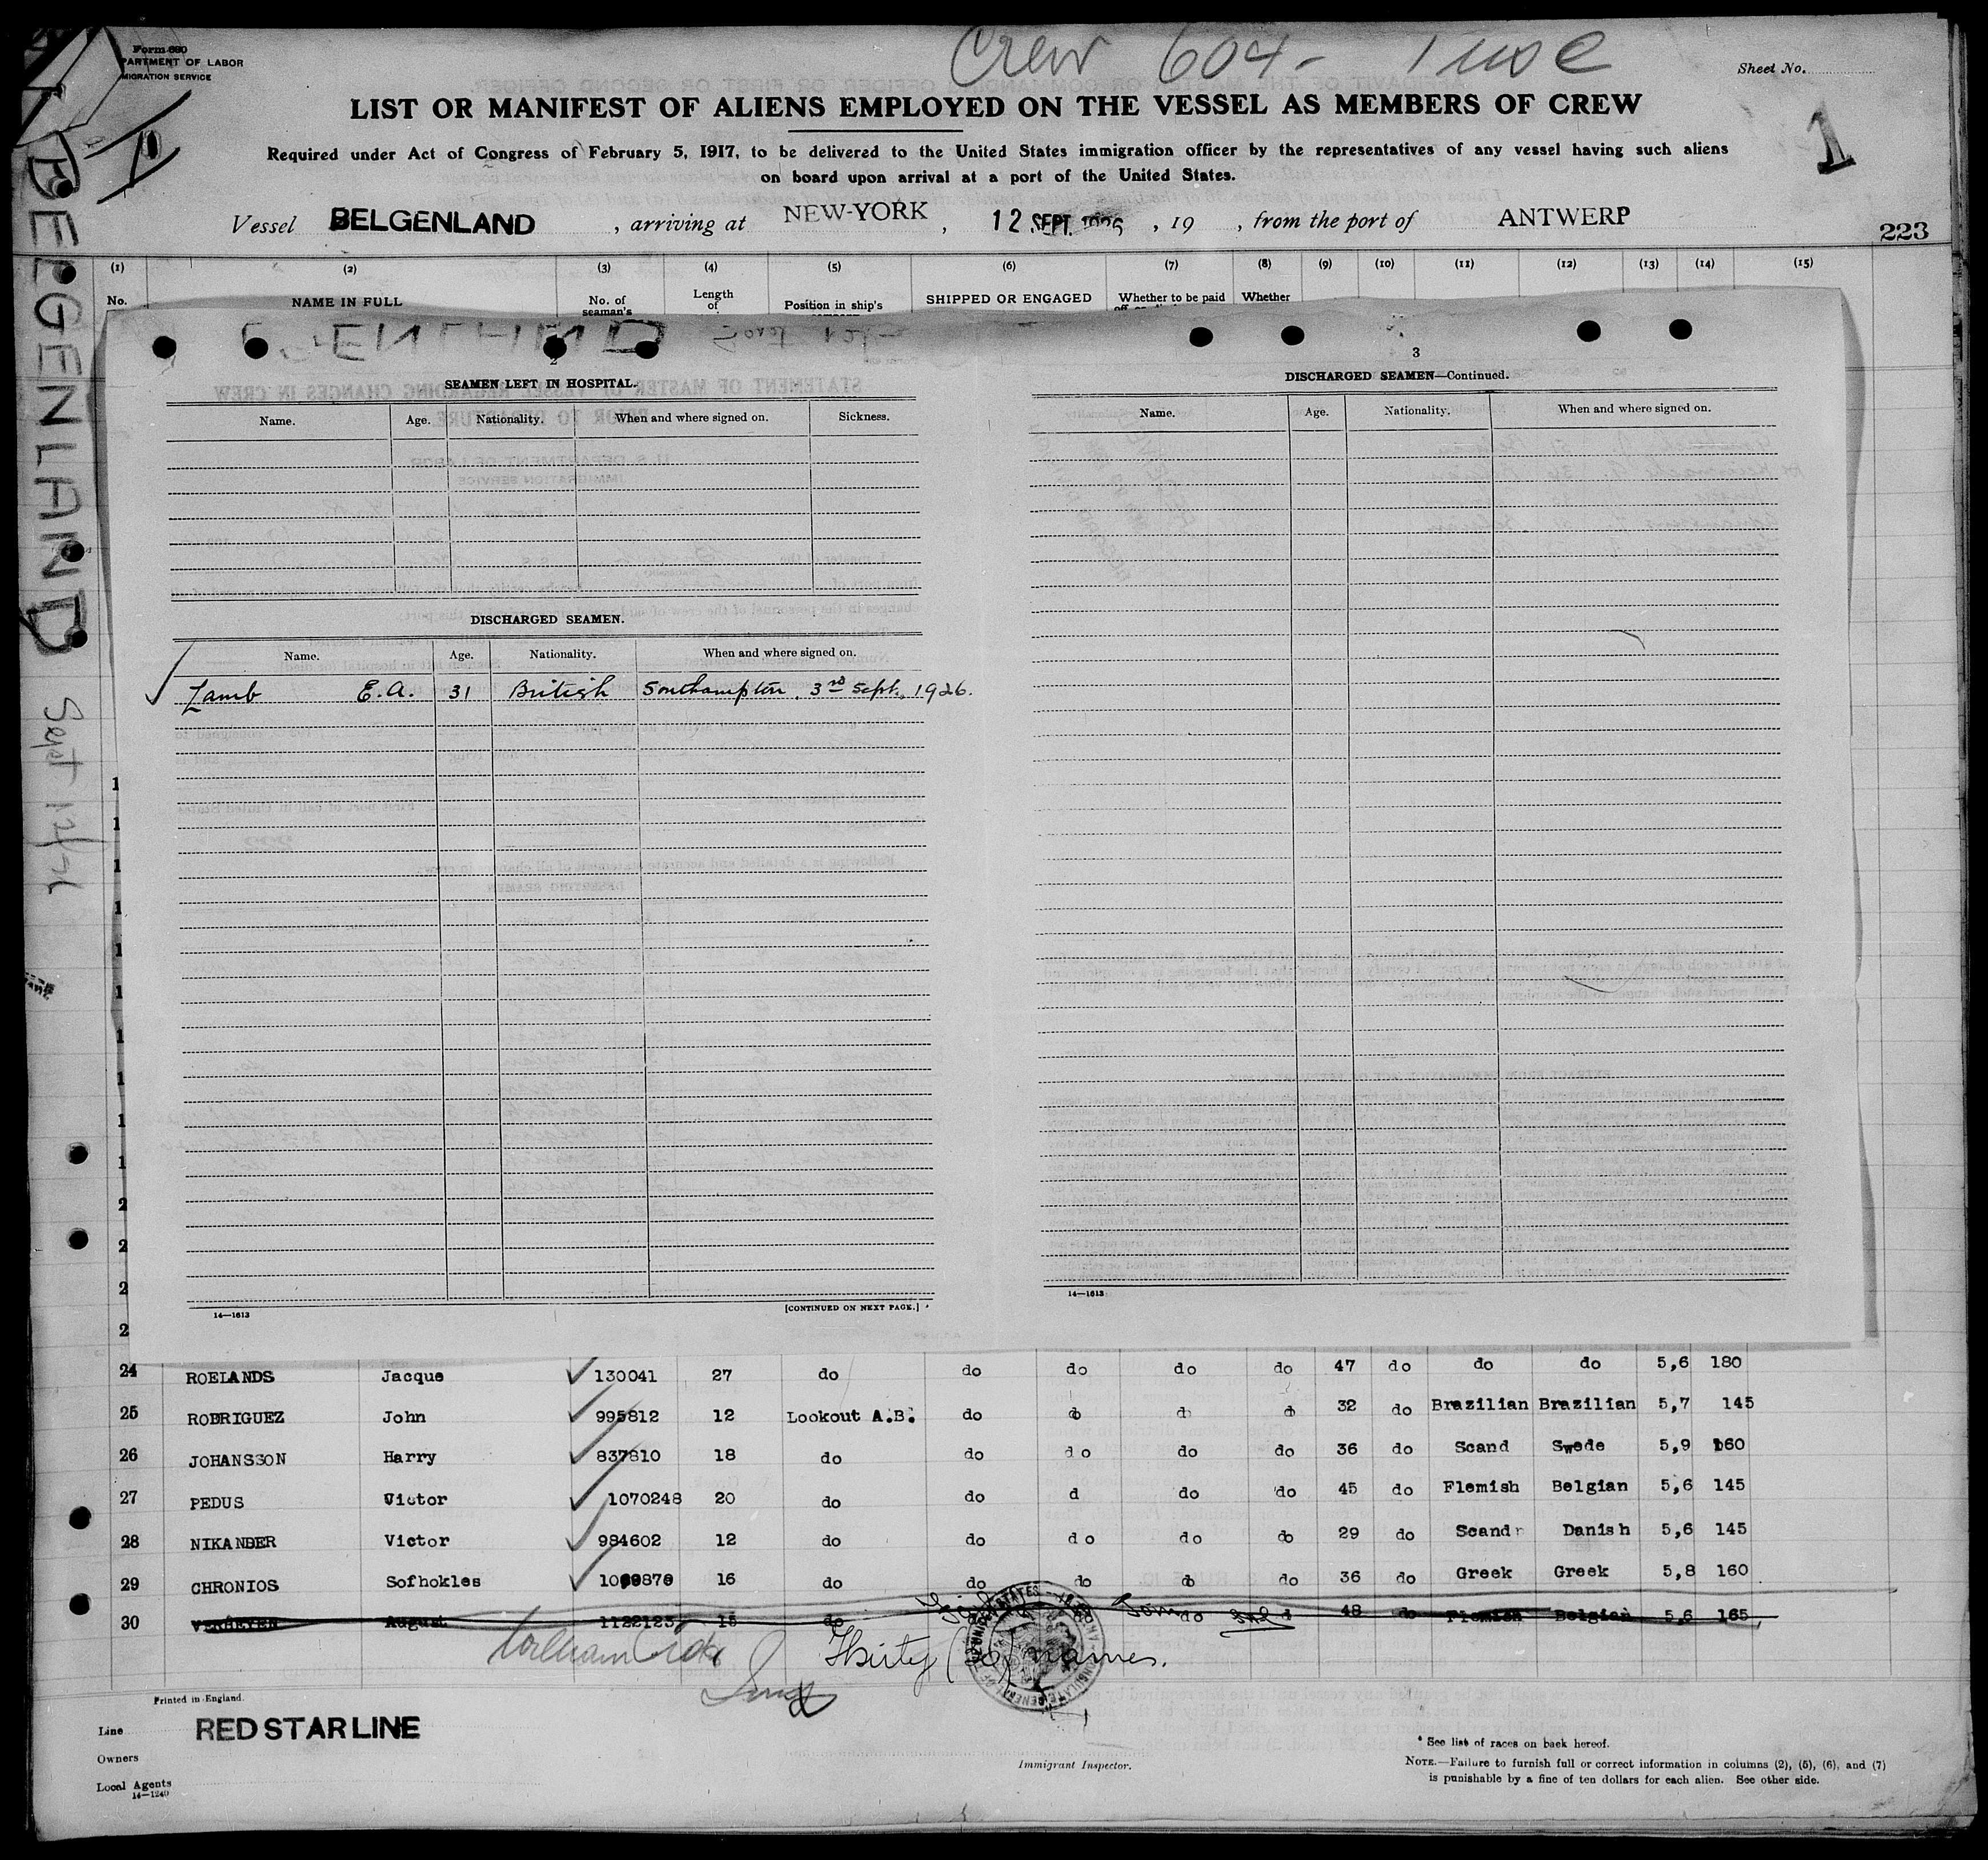 Form 680
PARTMENT OF LABOR
MIGRATION SERVICE
Crew 604-
Sheet No.
LIST OR MANIFEST OF ALIENS EMPLOYED ON THE VESSEL AS MEMBERS OF CREW
1
Required under Act of Congress of February 5, 1917, to be delivered to the United States immigration officer by the representatives of any vessel having such aliens
on board upon arrival at a port of the United States.
Vessel BELGENLAND , arriving at NEW-YORK , 12 SEPT. 1926 , 19 , from the port of ANTWERP
223
BELGENLAND Sept 12/26
(1) (2) (3) (4) (5) (6) (7) (8) (9) (10) (11) (12) (13) (14) (15)
No. NAME IN FULL No. of seaman's Length of Position in ship's SHIPPED OR ENGAGED Whether to be paid Whether
2
SEAMEN LEFT IN HOSPITAL.
Name. Age. Nationality. When and where signed on. Sickness.
DISCHARGED SEAMEN.
Name. Age. Nationality. When and where signed on.
Lamb E.A. 31 British Southampton. 3rd Sept. 1926.
14—1613
[CONTINUED ON NEXT PAGE.]
3
DISCHARGED SEAMEN—Continued.
Name. Age. Nationality. When and where signed on.
14—1613
24 ROELANDS Jacque 130041 27 do do do do do 47 do do do 5,6 180
25 RODRIGUEZ John 995812 12 Lookout A.B. do do do do 32 do Brazilian Brazilian 5,7 145
26 JOHANSSON Harry 837810 18 do do do do do 36 do Scand Swede 5,9 160
27 PEDUS Victor 1070248 20 do do d do do 45 do Flemish Belgian 5,6 145
28 NIKANDER Victor 984602 12 do do do do do 29 do Scand Danish 5,6 145
29 CHRONIOS Sofhokles 16 do do do do do 36 do Greek Greek 5,8 160
30 VERHEYEN August 1122123 15 do do do 48 do Flemish Belgian 5,6 165
Thirty (30) names.
Printed in England.
Line RED STAR LINE
Owners
Local Agents
14—1240
Immigrant Inspector.
* See list of races on back hereof.
NOTE.—Failure to furnish full or correct information in columns (2), (5), (6), and (7)
is punishable by a fine of ten dollars for each alien. See other side.